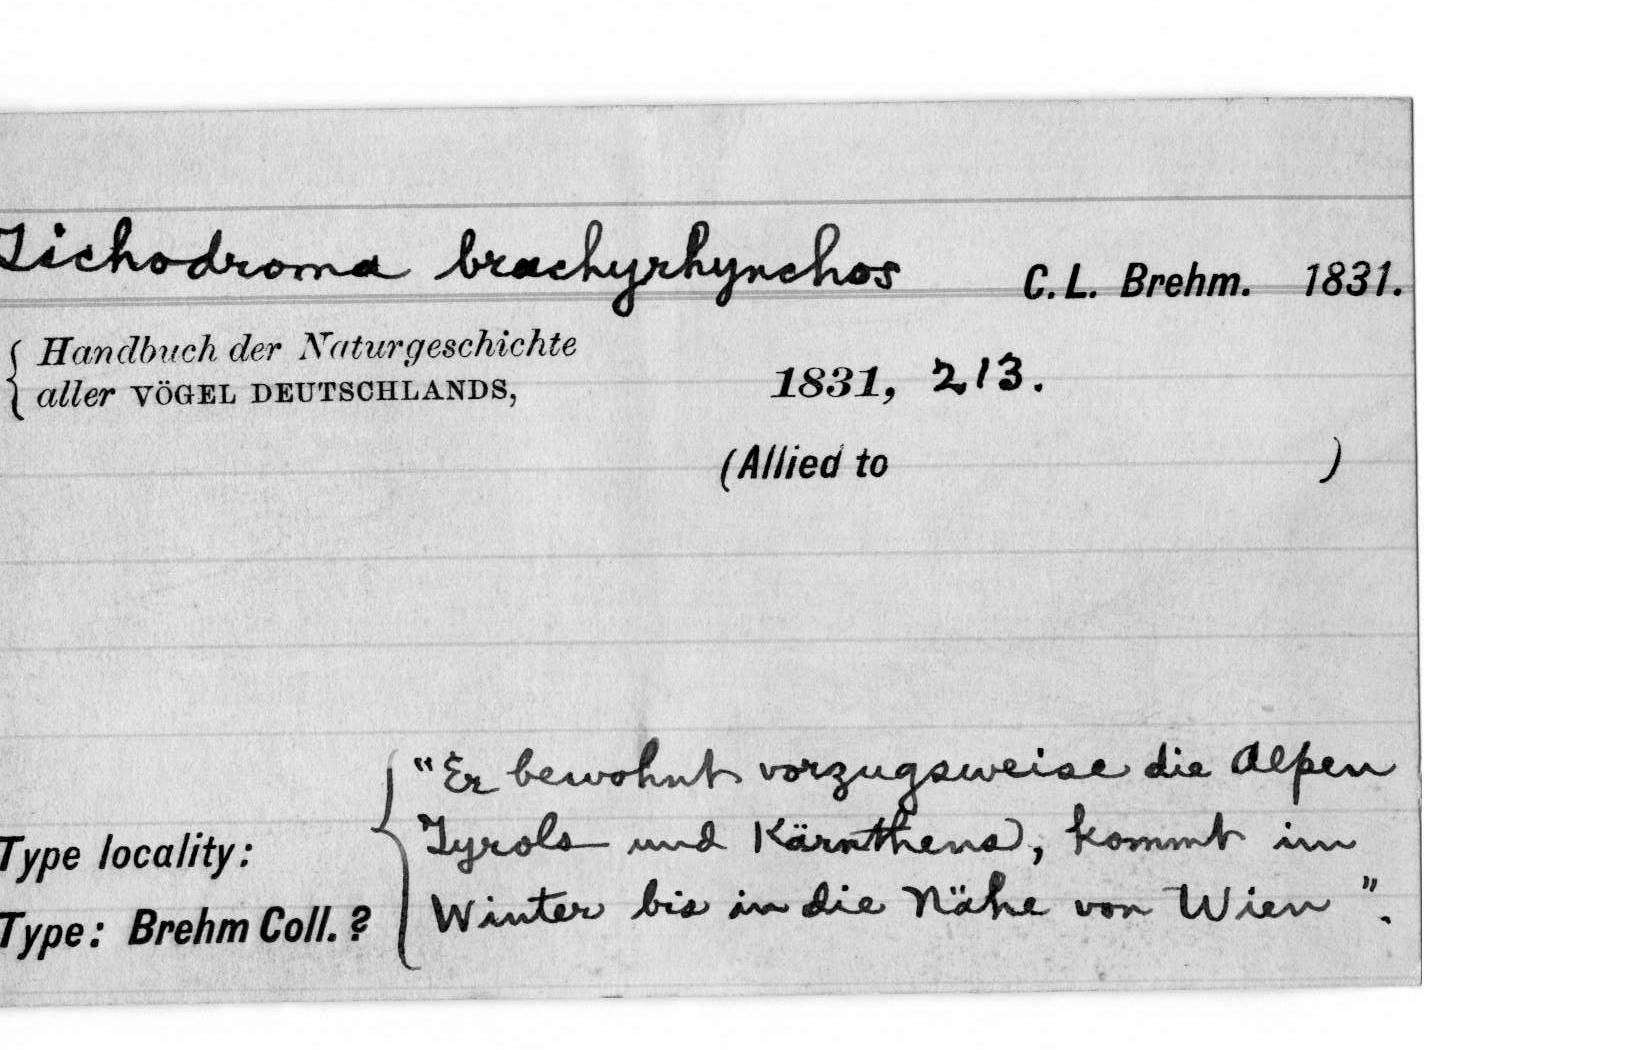 Tichodroma brachyrhynchos C. L. Brehm. 1831.
Handbuch der Naturgeschichte
aller VÖGEL DEUTSCHLANDS, 1831, 213.
(Allied to )
"Er bewohnt vorzugsweise die Alpen
Type locality: Tyrols und Kärnthens, kommt im
Type: Brehm Coll. ? Winter bis in die Nähe von Wien".